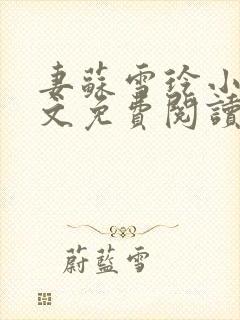 妻蘇雪玲小
文免費閱讀
蔚藍雪